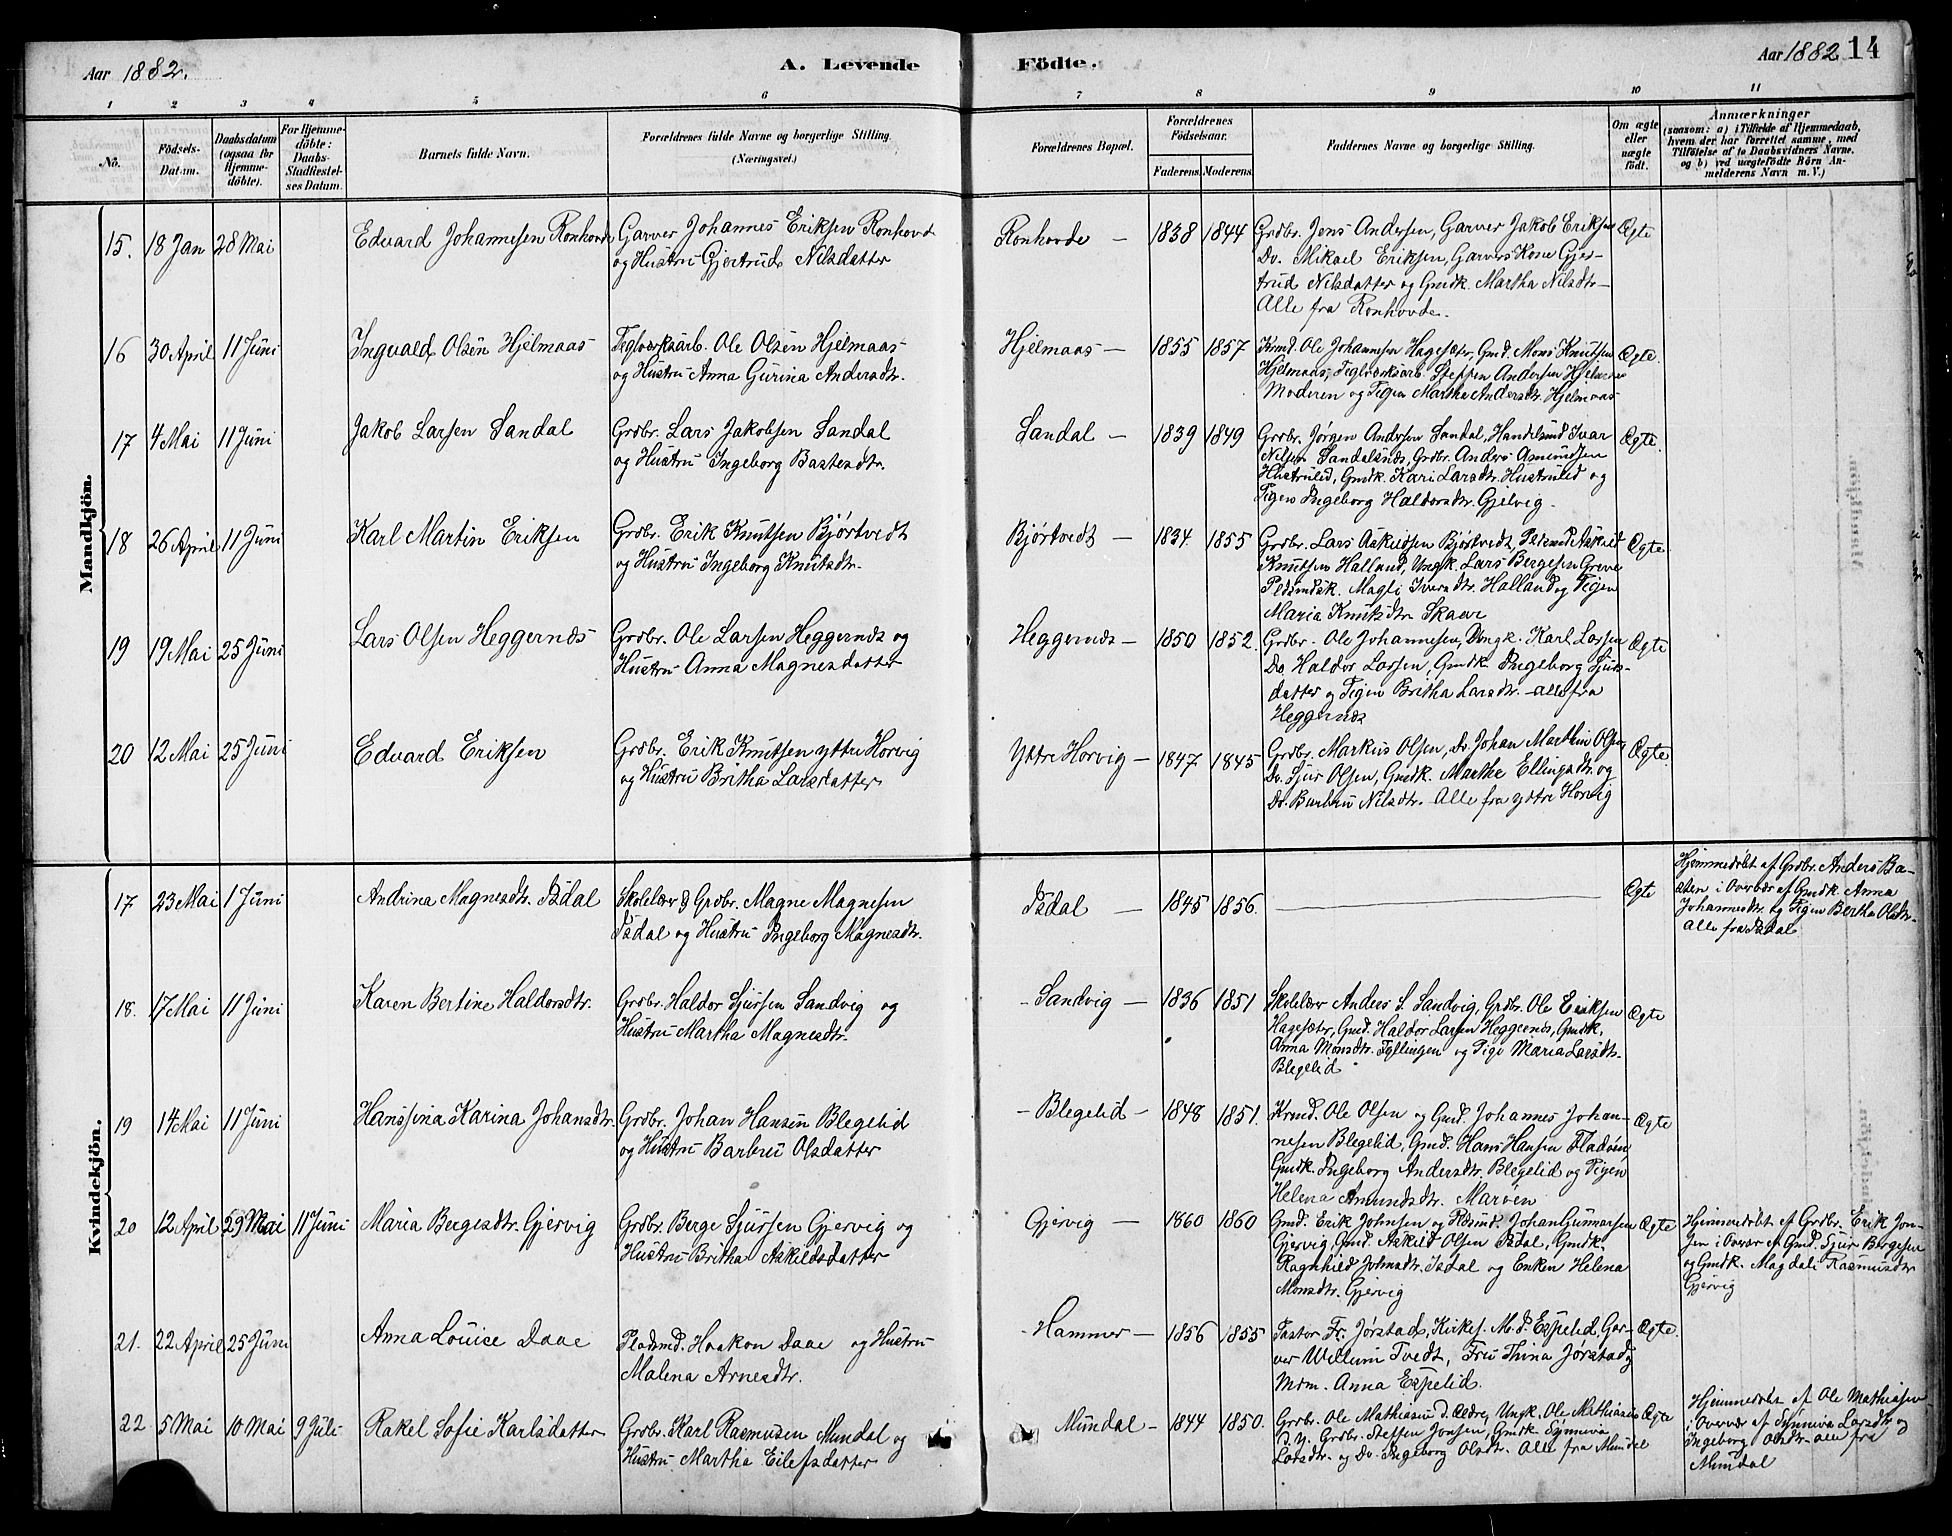 Aar 1882.
A. Levende
Födte.
Aar 1882
14
1 2 3 4 5 6 7 8 9 10 11
No.
Födsels-
Datum.
Daabsdatum
(ogsaa for
Hjemme-
döbte).
For Hjemme-
döbte:
Daabs-
Stadfæstel-
ses Datum.
Barnets fulde Navn.
Forældrenes fulde Navne og borgerlige Stilling.
(Næringsvei.)
Forældrenes Bopæl.
Forældrenes
Födselsaar.
Faderens. Moderens.
Faddernes Navne og borgerlige Stilling.
Om ægte
eller
uægte
födt.
Anmærkninger
(saasom: a) i Tilfælde af Hjemmedaab,
hvem der har forrettet samme, med
Tilföielse af to Daabsvidners Navne.
og b) ved uægtefödte Börn An-
melderens Navn m. V.)
Mandkjön.
15. 18 Jan 28 Mai Edvard Johannesen Ronhovde Garver Johannes Eriksen Ronhovd
og Hustru Gjertrud Nilsdatter
Ronhovde — 1838 1844 Grdbr. Jens Andersen, Garver Jakob Eriksen Ægte
Do. Mikael Eriksen, Garvers Kone Gjer-
trud Nilsdatter og Gmdk. Martha Nilsdtr —
Alle fra Ronhovde.
16 30 April 11 Juni Ingvald Olsen Hjelmaas Teglværksarb. Ole Olsen Hjelmaas
og Hustru Anna Gurina Andersdtr.
Hjelmaas — 1855 1857 Krmd. Ole Johannesen Hagesæter, Gmd. Mons Knutsen Ægte.
Hjelmaas, Teglværksarb. Steffen Andersen Hjelmaas
Moderen og Pigen Martha Andersdtr. Hjelmaas
17 4 Mai 11 Juni Jakob Larsen Sandal Grdbr. Lars Jakobsen Sandal
og Hustru Ingeborg Bastesdtr.
Sandal — 1839 1849 Grdbr. Jørgen Andersen Sandal, Handelsmd Ivar Ægte.
Nilsen Sandalsnds, Grdbr. Anders Amundsen
Hustrulid, Gmdk. Kari Larsdtr. Hustrulid og
Pigen Ingeborg Haldorsdtr. Gjelvig.
18 26 April 11 Juni Karl Martin Eriksen Grdbr. Erik Knutsen Bjørtvedt
og Hustru Ingeborg Knutsdtr.
Bjørtvedt — 1834. 1855 Grdbr. Lars Askildsen Bjørtvedt, Askild Ægte
Knutsen Halland, Ungk. Lars Bergesen Greve
Pldsmdsk. Magli Iversdtr. Halland og Pigen
Maria Knutsdtr. Skaar
19 19 Mai 25 Juni Lars Olsen Heggernæs Grdbr. Ole Larsen Heggernæs og
Hustru Anna Magnesdatter
Heggernæs — 1850 1852. Grdbr. Ole Johannesen, Ungk. Karl Larsen Ægte
Do. Haldor Larsen, Gmdk. Ingeborg Sjurs-
datter og Pigen Britha Larsdtr. — alle fra
Heggernæs
20 12 Mai 25 Juni Edvard Eriksen Grdbr. Erik Knutsen yttre Horvig
og Hustru Britha Larsdatter
Yttre Horvig — 1847 1845 Grdbr. Markus Olsen, Do. Johan Marthin Olsen Ægte.
Do. Sjur Olsen, Gmdk. Marthe Ellingsdtr. og
Do. Barbru Nilsdtr. Alle fra yttre Horvig
Kvindekjön.
17 23 Mai 1 Juni Andrina Magnesdtr. Isdal Skolelær & Grdbr. Magne Magnesen
Isdal og Hustru Ingeborg Magnesdtr.
Isdal — 1845 1856. — Ægte
Hjemmedøbt af Grdbr. Anders Ba-
stesen i Overvær af Gmdk. Anna
Johannesdtr. og Pigen Bertha Olsdtr.
alle fra Isdal
18. 17 Mai 11 Juni Karen Bertine Haldorsdtr. Grdbr. Haldor Sjursen Sandvig og
Hustru Martha Magnesdtr.
— Sandvig — 1836 1851 Skolelær Anders S. Sandvig, Grdbr. Ole Eriksen Ægte
Hagesæter, Gmd. Haldor Larsen Heggernæs, Gmdk.
Anna Monsdtr. Fyllingen og Pige Maria Larsdtr.
Blegelid
19 14 Mai 11 Juni Hanssina Karina Johansdtr. Grdbr. Johan Hansen Blegelid
og Hustru Barbru Olsdatter
— Blegelid — 1848 1851. Krmd. Ole Olsen og Gmd. Johannes Johan- Ægte
nesen Blegelid, Gmd. Hans Hansen Fladøen,
Gmdk. Ingeborg Andersdtr. Blegelid og Pigen
Helena Amundsdtr. Marøen
20 12 April 29 Mai 11 Juni Maria Bergesdtr. Gjervig Grdbr. Berge Sjursen Gjervig og
Hustru Britha Askildsdatter
Gjervig — 1860 1860 Gmd. Erik Johnsen og Pldsmd. Johan Gunnarsen Ægte
Gjervig, Gmd. Askild Olsen Isdal, Gmdk.
Ragnhild Johnsdtr. Isdal og Enken Helena
Monsdtr. Gjervig
Hjemmedøbt af Grdbr. Erik Jon-
sen i Overvær af Gmd. Sjur Bergesen
og Gmdk. Magdali Rasmusdtr.
Gjervig
21. 22 April 25 Juni Anna Louise Daae Pladsmd. Haakon Daae og Hustru
Malena Arnesdtr.
— Hammer — 1856 1855 Pastor Fr. Jørstad, Kirkes. M. d. Espelid, Gar- Ægte.
ver Willum Tvedt, Fru Thina Jørstad og
Mdm. Anna Espelid.
22 5 Mai 10 Mai 9 Juli Rakel Sofie Karlsdatter Grdbr. Karl Rasmusen Mundal og
Hustru Martha Eilefsdatter
Mundal — 1844 1850. Grdbr. Ole Mathiasen d. Ældre, Ungk. Ole Mathiasen Ægte
d. Y. Grdbr. Steffen Jonsen, Gmdk. Synneva
Larsdtr. og Do. Ingeborg Olsdtr. Alle fra Mundal
Hjemmedøbt af Ole Mathiasen
i Overvær af Synneva Larsdtr og
Ingeborg Olsdtr. alle fra
Mundal